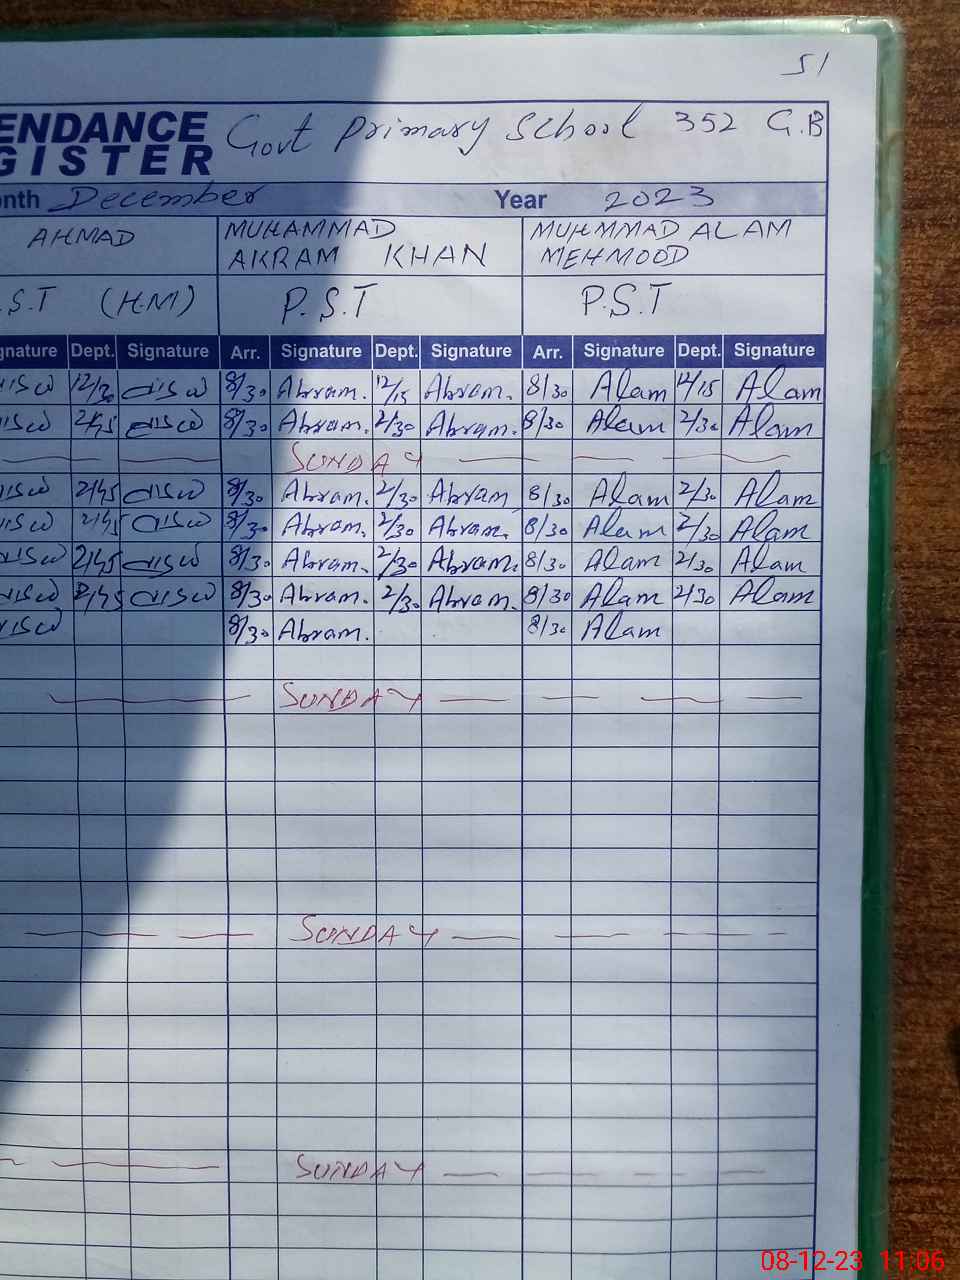 51
ENDANCE Govt Primary School 352 G.B
GISTER
onth December Year 2023
AHMAD MUHAMMAD AKRAM KHAN MUHMMAD ALAM MEHMOOD
.S.T (H.M) P.S.T P.S.T
gnature Dept. Signature Arr. Signature Dept. Signature Arr. Signature Dept. Signature
12/30 8/30 Akram. 12/15 Akram. 8/30 Alam 12/15 Alam
2/45 8/30 Akram. 2/30 Akram. 8/30 Alam 2/30 Alam
SUNDAY
2/45 8/30 Akram. 2/30 Akram 8/30 Alam 2/30 Alam
2/45 8/30 Akram. 2/30 Akram. 8/30 Alam 2/30 Alam
2/45 8/30 Akram. 2/30 Akram. 8/30 Alam 2/30 Alam
2/45 8/30 Akram. 2/30 Akram. 8/30 Alam 2/30 Alam
8/30 Akram. 8/30 Alam
SUNDAY
SUNDAY
SUNDAY
08-12-23 11:06